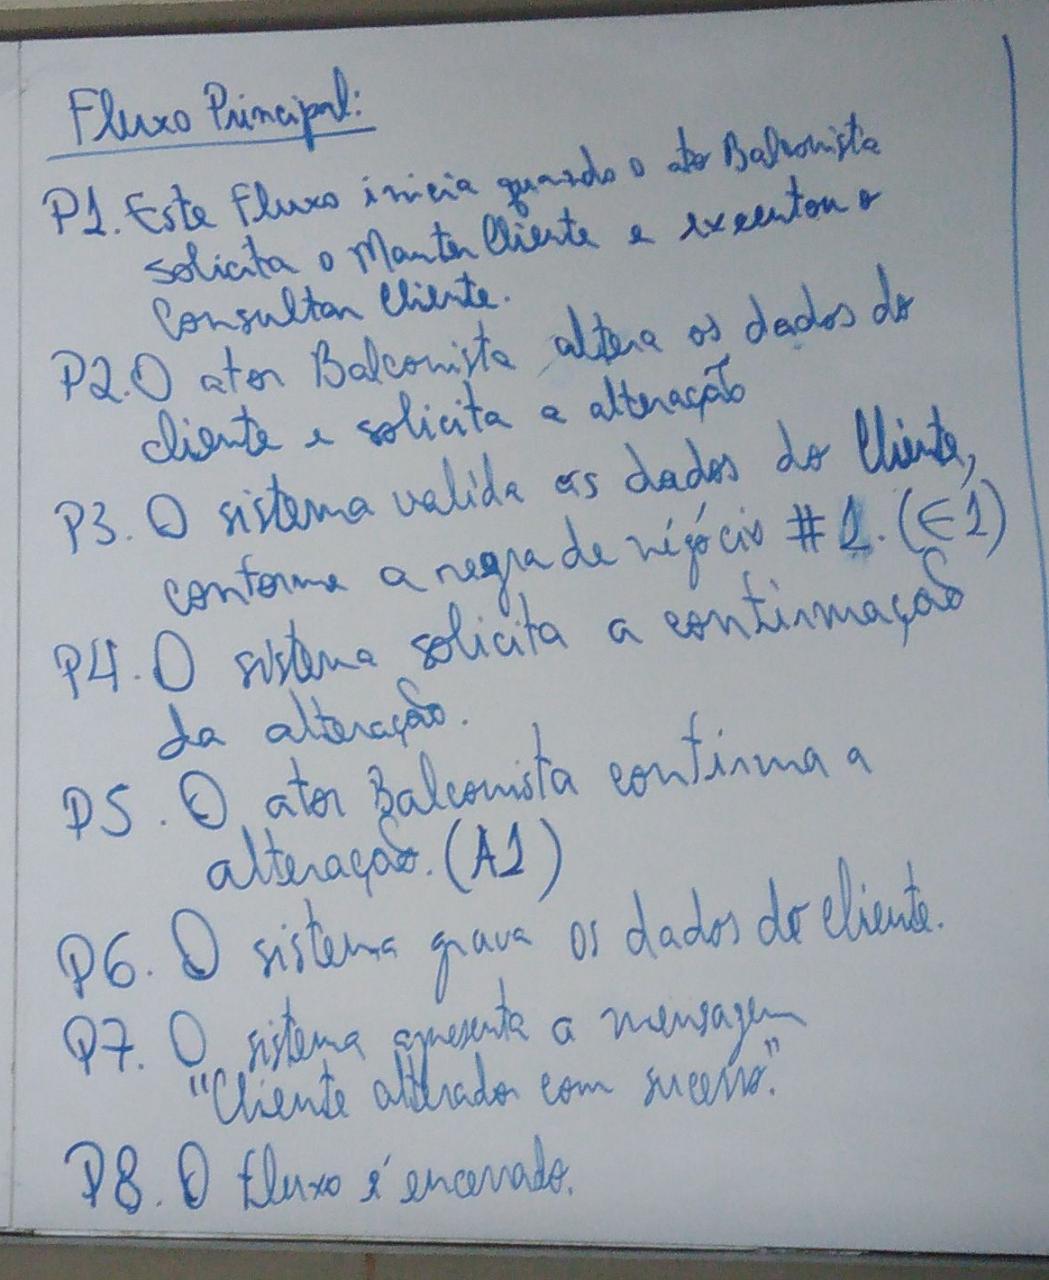 Fluxo Principal:
P1. Este fluxo inicia quando o ator Balconista
solicita o Manter Cliente e executou o
Consultar Cliente.
P2. O ator Balconista altera os dados do
cliente e solicita a alteração
P3. O sistema valida os dados do Cliente,
conforme a regra de négócio #1. (E1)
P4. O sistema solicita a confirmação
da alteração.
P5. O ator Balconista confirma a
alteração. (A1)
P6. O sistema grava os dados do cliente.
P7. O sistema apresenta a mensagem
"Cliente alterador com sucesso."
P8. O fluxo é encerrado.